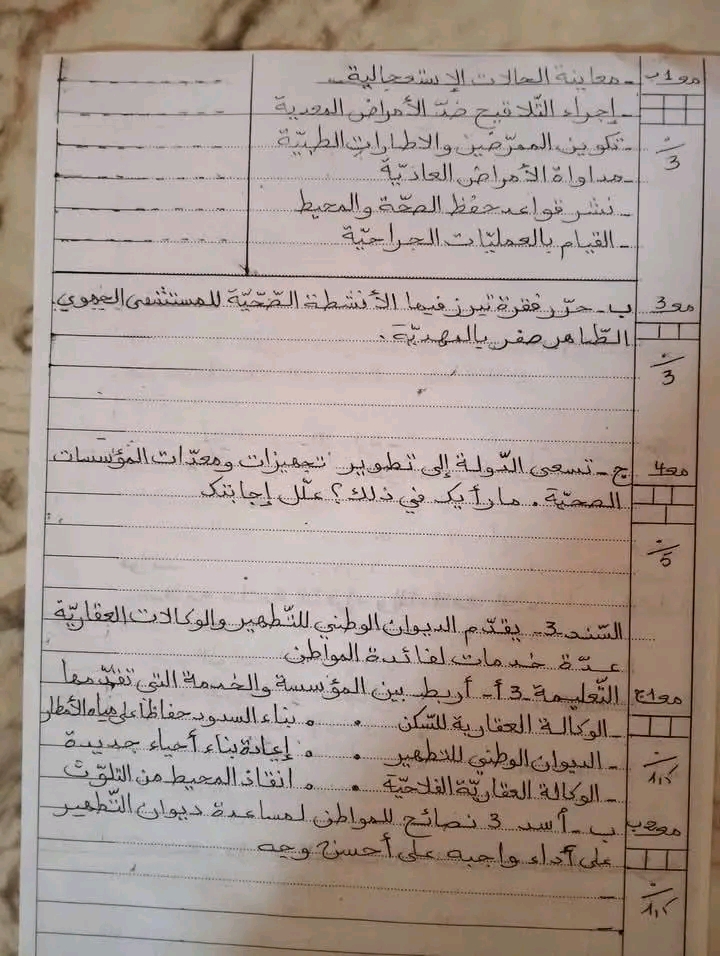 مع1ب
- معاينة الحالات الإستعجالية
- إجراء التّلاقيح ضدّ الأمراض المعدية
- تكوين الممرّضين والاطارات الطبيّة
3
- مداواة الأمراض العاديّة
- نشر قواعد حفظ الصحّة والمحيط
- القيام بالعمليّات الجراحيّة
مع3 ب - حرّر فقرة تبرز فيها الأنشطة الصّحّيّة للمستشفى الجهوي
الطّاهر صفر بالمهديّة.
3
مع4 ج - تسعى الدّولة إلى تطوير تجهيزات ومعدّات المؤسّسات
الصحيّة. ما رأيك في ذلك؟ علّل إجابتك
5
السّند 3 - يقدّم الديوان الوطني للتّطهير والوكالات العقاريّة
عدّة خدمات لفائدة المواطن
مع1ج التّعليمة 3 أ - أربط بين المؤسسة والخدمة التي تقدّمها
- الوكالة العقارية للسّكن • • بناء السدود حفاظا على مياه الأمطار
- الديوان الوطني للتطهير • • إعادة بناء أحياء جديدة
- الوكالة العقاريّة الفلاحيّة • • انقاذ المحيط من التلوّث
ب - أسد 3 نصائح للمواطن لمساعدة ديوان التّطهير
على أداء واجبه على أحسن وجه
-
-